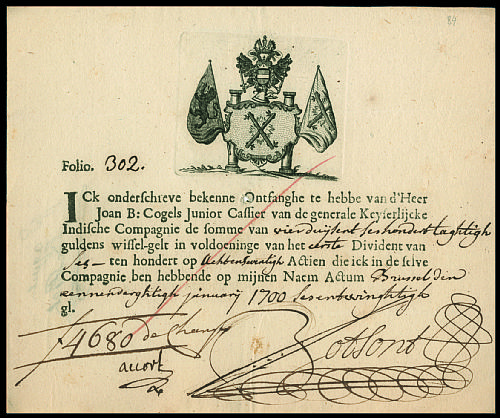 84
Folio. 302.
ICk onderschreve bekenne Ontfanghe te hebbe van d'Heer
Joan B: Cogels Junior Cassier van de generale Keyserlijcke
Indische Compagnie de somme van vierduysent seshondert taghtigh
guldens wissel-gelt in voldoeninge van het eerste Divident van
ses - ten hondert op Actien die ick in de selve
Compagnie ben hebbende op mijnen Naem Actum Brussel den
eenendertightigh januarij 1700 sesentwintigh
gl.
f 4680 de Change
accort